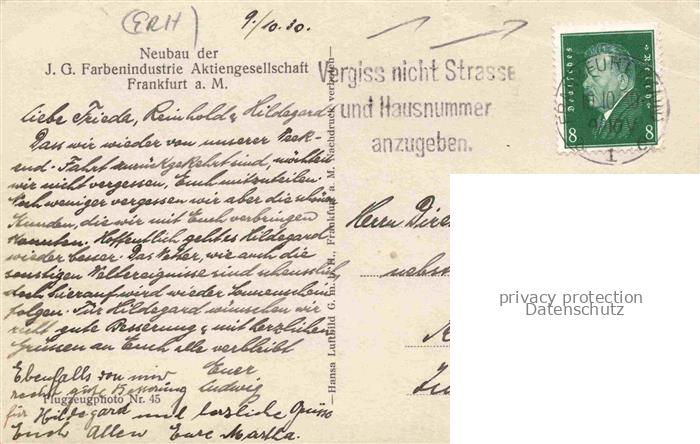 (ERH)
9./10.30.
Neubau der
J. G. Farbenindustrie Aktiengesellschaft
Frankfurt a. M.
Liebe Frieda, Reinhold u. Hildegard
Dass wir wieder von unserer Week-
end-Fahrt zurückgekehrt sind, möchten
wir nicht vergessen, Euch mitzuteilen.
Noch weniger vergessen wir aber die schönen
Stunden, die wir mit Euch verbringen
konnten. Hoffentlich geht es Hildegard
wieder besser. Das Wetter, wie auch die
sonstigen Weltereignisse sind scheusslich,
doch hierauf wird wieder Sonnenschein
folgen. Für Hildegard wünschen wir
recht gute Besserung u. mit herzlichen
Grüssen an Euch alle verbleibt
Euer
Ludwig
Ebenfalls von mir
recht gute Besserung
für Hildegard und herzliche Grüsse
Euch Allen Eure Martha.
Flugzeugphoto Nr. 45
Hansa Luftbild G. m. b. H., Frankfurt a. M. Nachdruck verboten
Vergiss nicht Strasse
und Hausnummer
anzugeben.
Deutsches Reich
8 8
FRANKFURT
10.30
1
Herrn Dire
nebs
privacy protection
Datenschutz